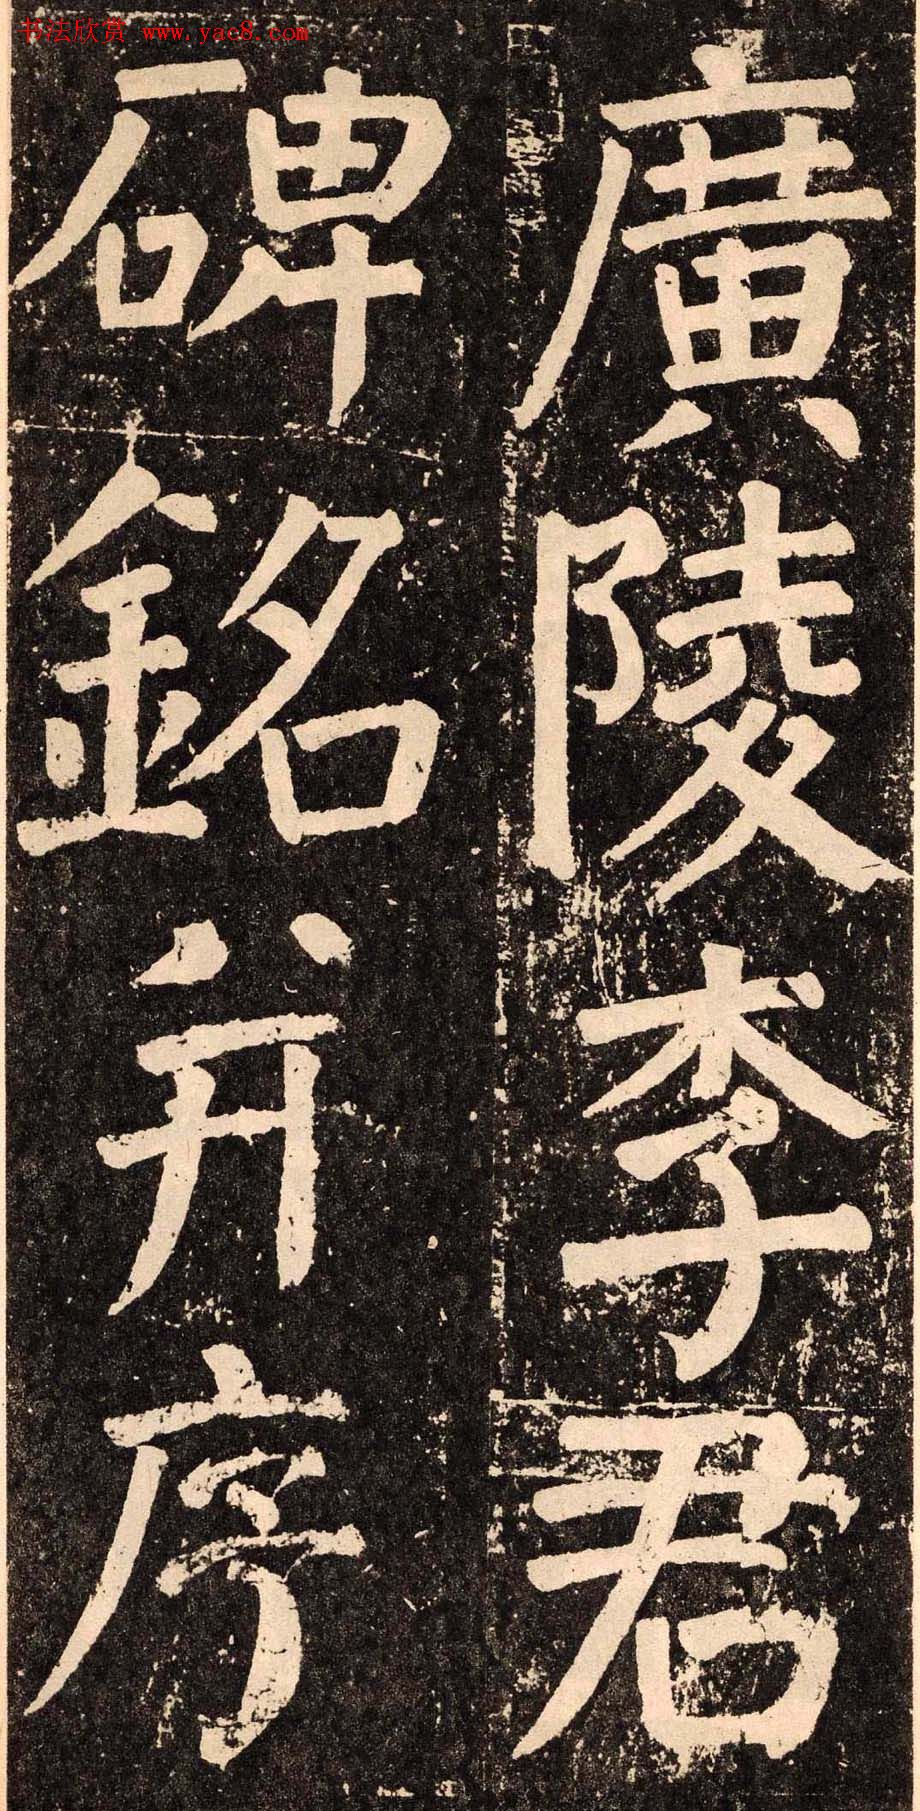 书法欣赏 www.yac8.com
廣陵李君
碑銘并序